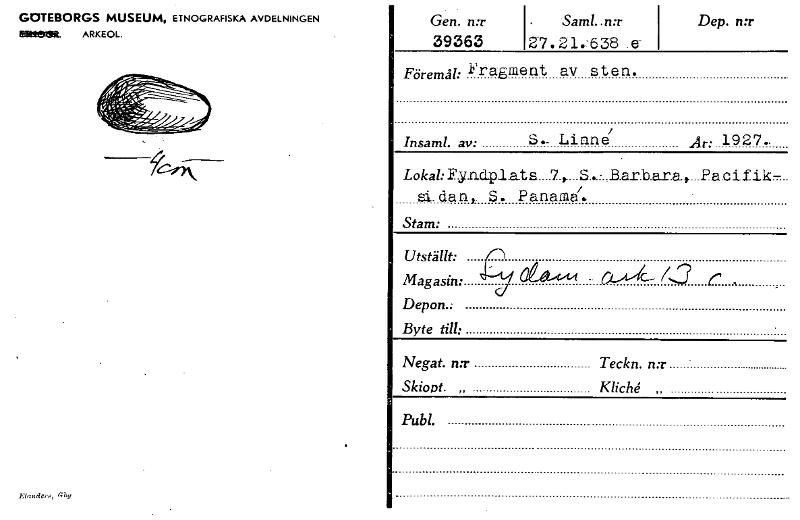 GÖTEBORGS MUSEUM, ETNOGRAFISKA AVDELNINGEN
ARKEOL.
4cm
Elanders, Gbg
Gen. n:r Saml. n:r Dep. n:r
39363 27.21.638 e
Föremål: Fragment av sten.
Insaml. av: S. Linné År: 1927.
Lokal: Fyndplats 7, S. Barbara, Pacifik-
sidan, S. Panamá.
Stam:
Utställt:
Magasin: Sydam ark 13 c.
Depon.:
Byte till:
Negat. n:r Teckn. n:r
Skiopt. „ Kliché „
Publ.